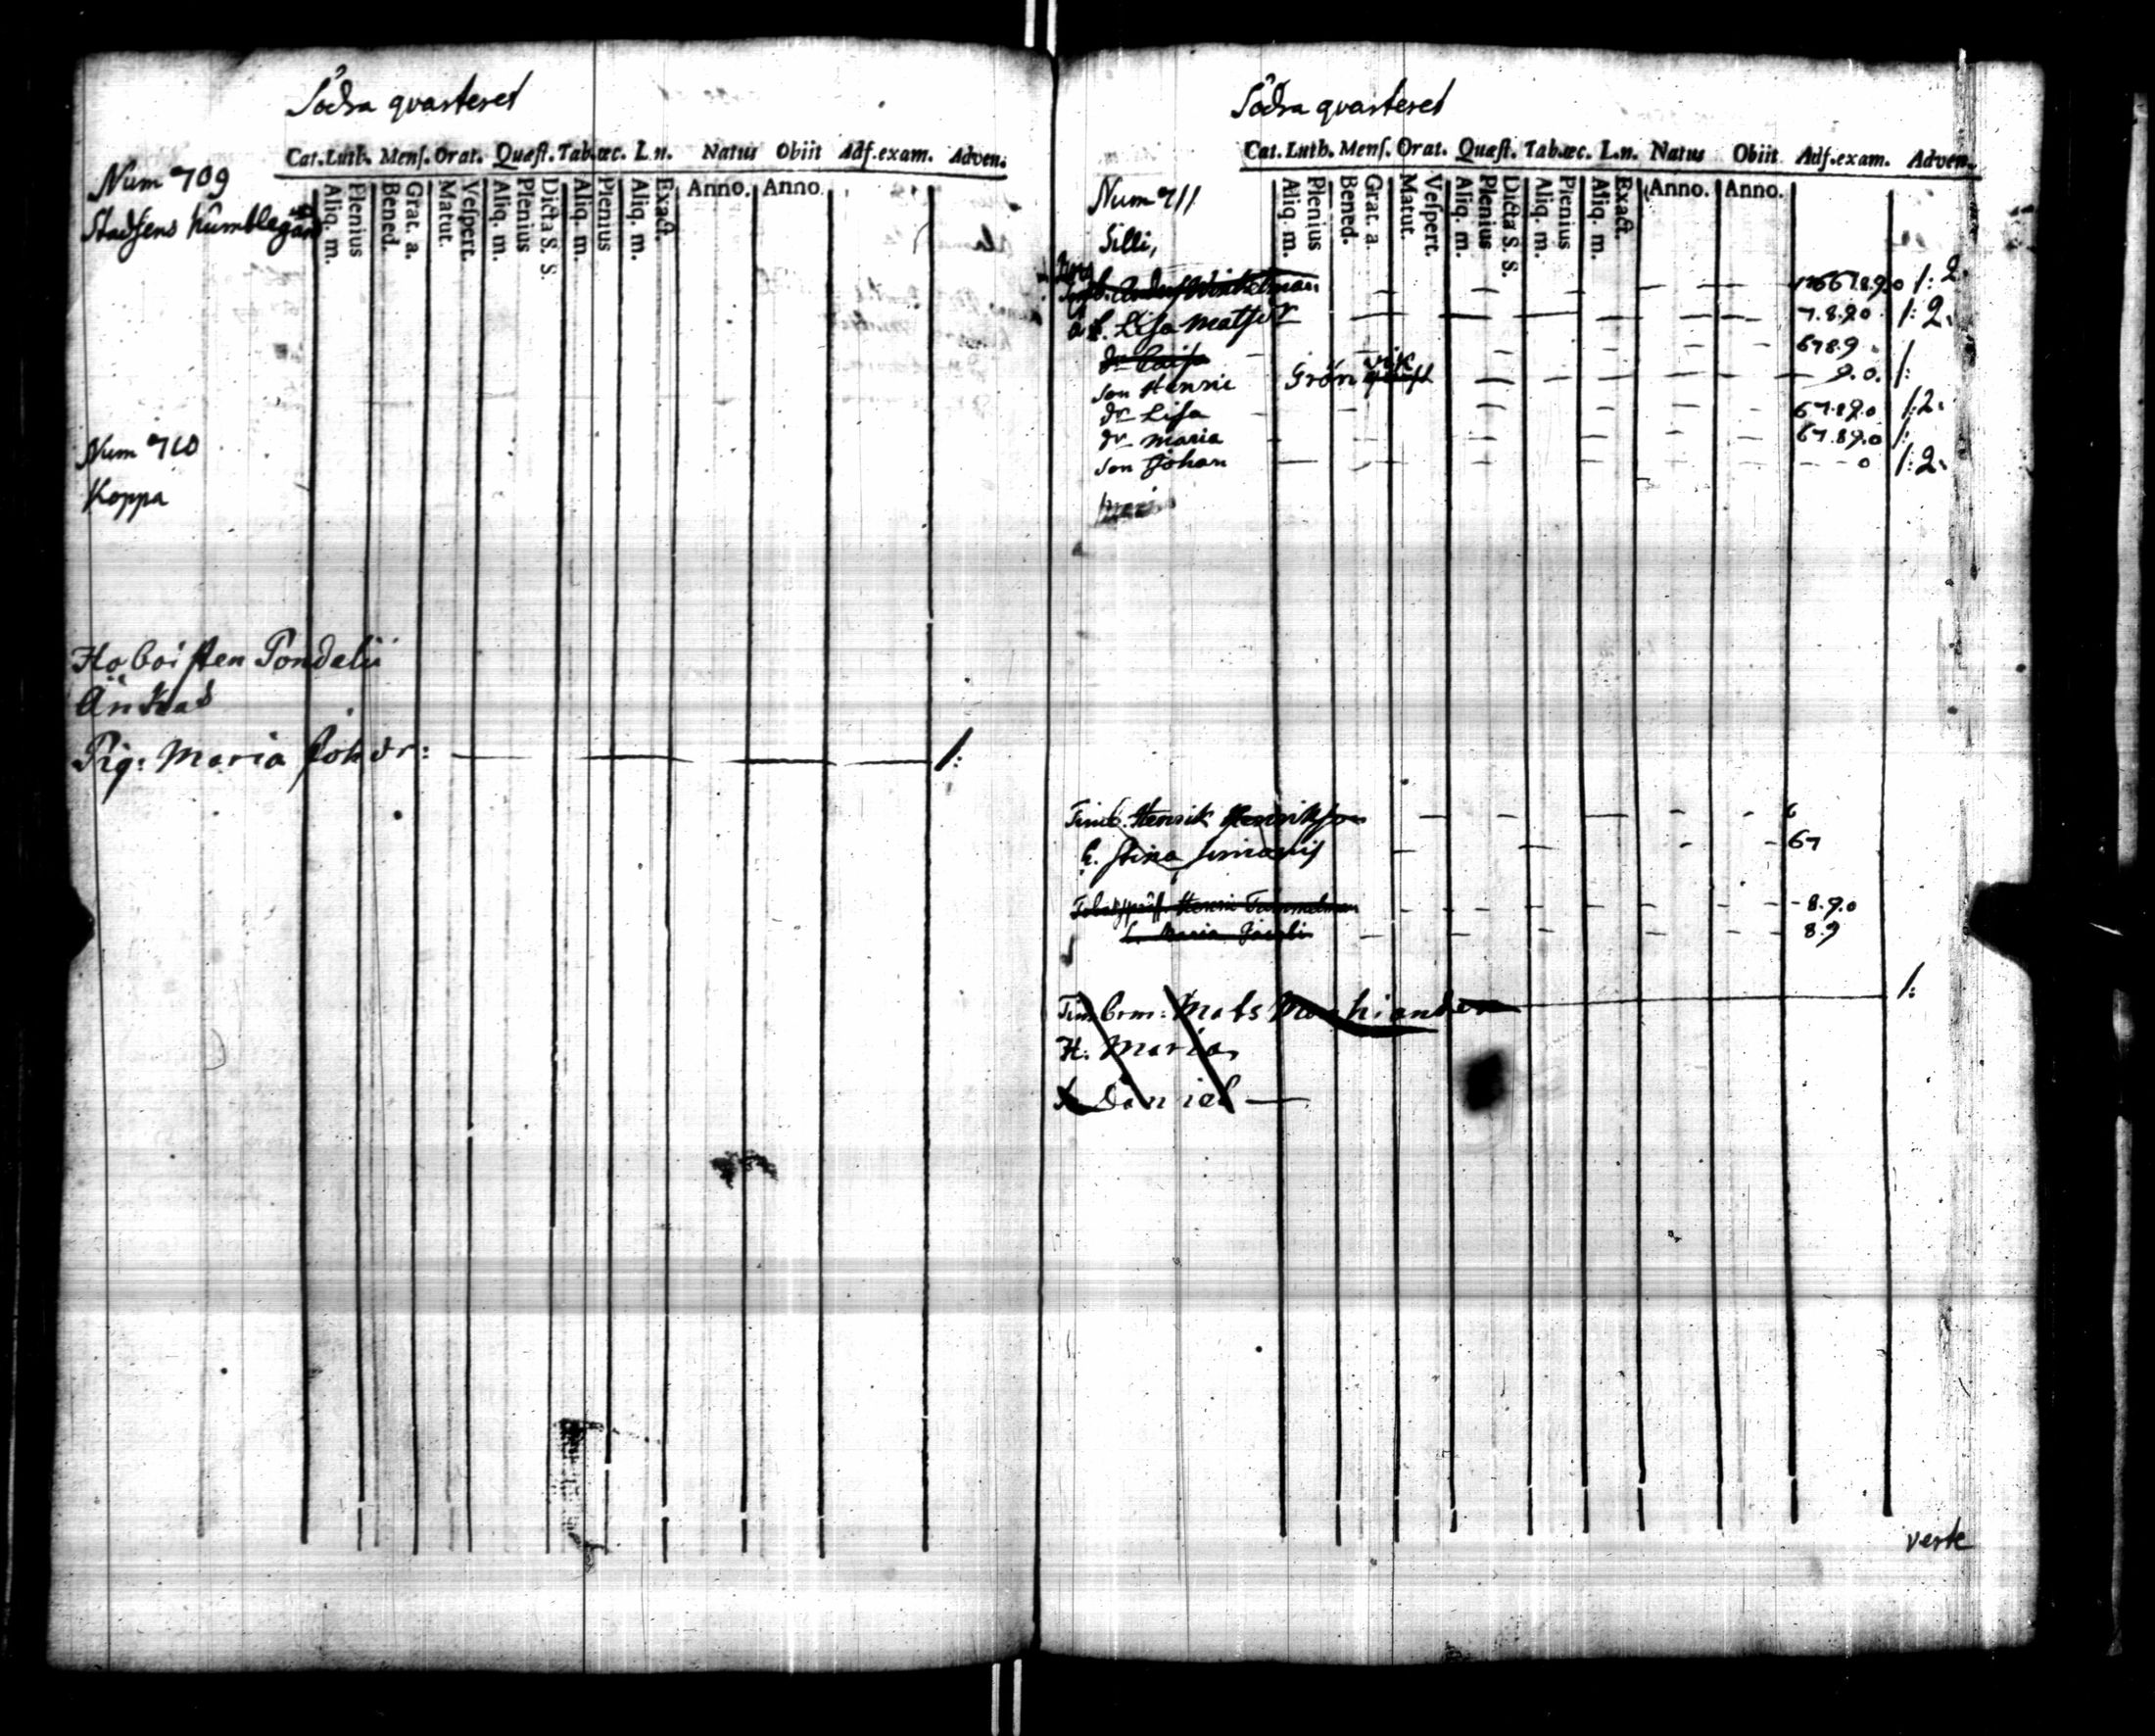 Södra qvarteret
Cat. Luth. Mens. Orat. Quæst. Tab. œc. L. n. Natus Obiit Adf. exam. Adven.
Aliq. m. Plenius Bened. Grat. a. Matut. Vespert. Aliq. m. Plenius Dicta S. S. Aliq. m. Plenius Aliq. m. Exact. Anno. Anno.
Num 709
Stadsens humblegård
Num 710
Koppa
Hoboisten Pondelii
Änkas
Pig: Maria Joh dr: 1:
Södra qvarteret
Cat. Luth. Mens. Orat. Quæst. Tab. œc. L. n. Natus Obiit Adf. exam. Adven.
Aliq. m. Plenius Bened. Grat. a. Matut. Vespert. Aliq. m. Plenius Dicta S. S. Aliq. m. Plenius Aliq. m. Exact. Anno. Anno.
Num 711
Silli,
Anders Winkelman 1: 2.
h. Lisa Matsdr 7.8.9.0 1: 2.
dr Caisa 6 7 8 9
son Henric Grönvik 9.0. 1:
dr Lisa 6 7.8 9.0 1: 2.
dr Maria 6 7.8 9.0 1:
son Johan 0 1: 2.
Timb. Henrik Henriksson 6
h. Stina Simonis 6 7
Henric Timmelman 8.9.0
h. Maria Jacobi 8 9
Timberm: Mats 1:
H. Maria
Daniel
verte